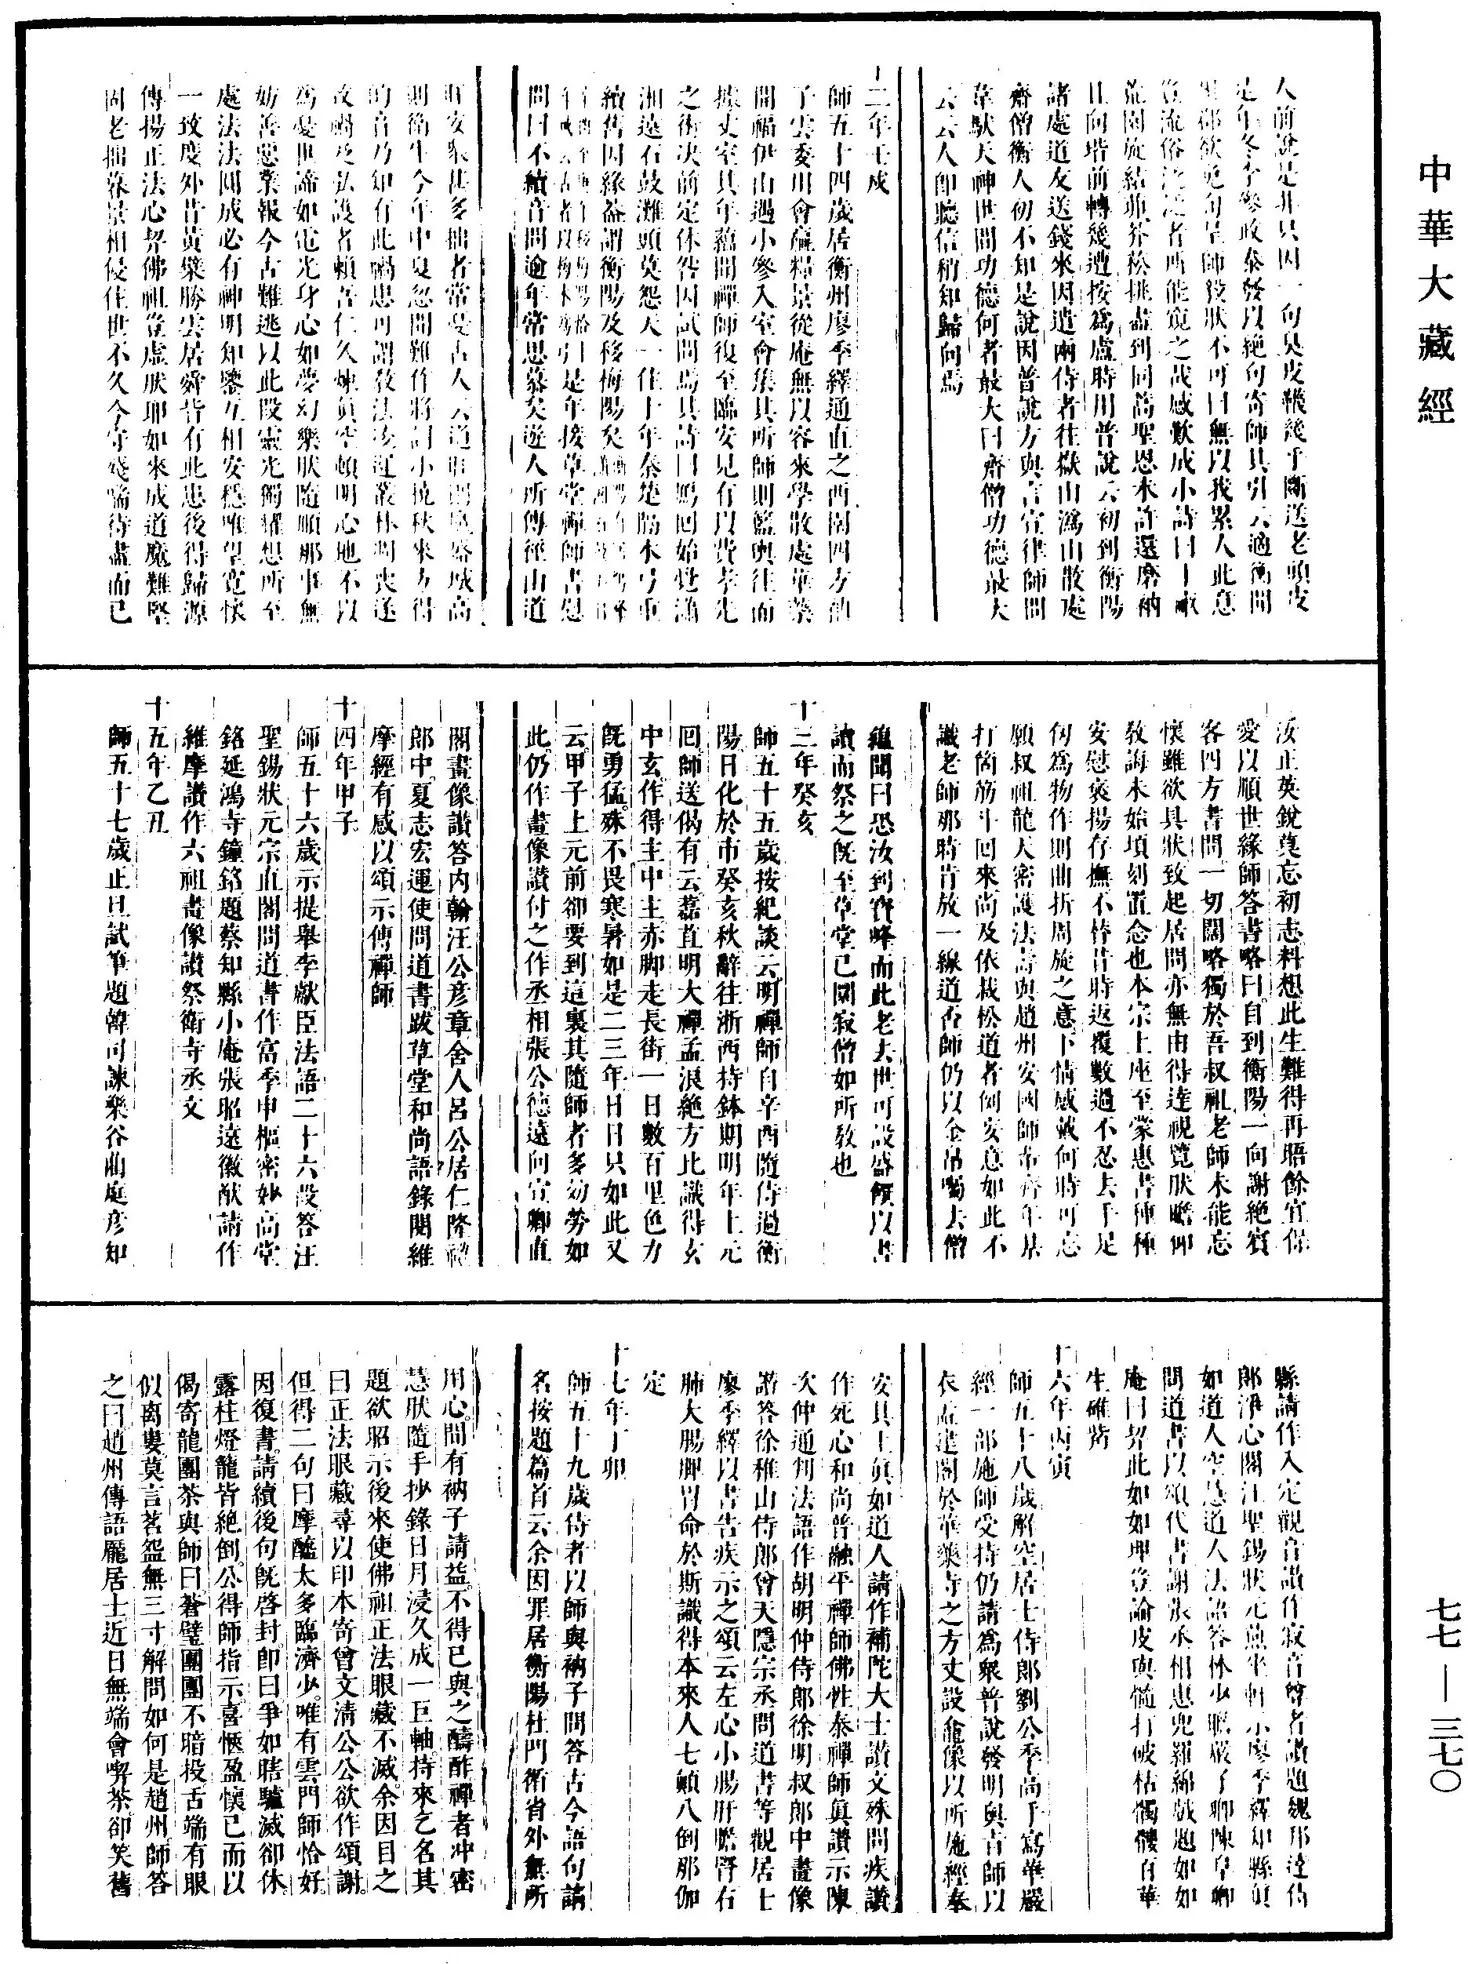 中華大藏經
人前說是非只因一句臭皮韈幾乎斷送老頭皮
是年冬李參政泰發以絕句寄師其引云適衡聞
諸處道友送錢來因遣兩侍者往嶽山溈山散處
齋僧衡人初不知是說因普說方與言宣律師問
韋馱天神世間功德何者最大曰齋僧功德最大
云云人卽聽信稍知歸向焉
十二年壬戌
師五十四歲居衡州廖季繹通直之西園四方衲
開福伊山遇小參入室會集其所師則籃輿往而
據丈室其年蘊聞禪師復至臨安見有以費孝先
之術決前定休咎因試問焉其詩曰鴈回始覺瀟
湘遠石鼓灘頭莫怨天一住十年秦楚隔木弓重
續舊因緣蓋謂衡陽及移梅陽矣
問曰不續音問逾年常思慕矣遊人所傳徑山道
則衛生今年中夏忽聞難作將謂小撓秋來方得
為憂世諦如電光身心如夢幻樂狀隨順那事無
妨善惡業報今古難逃以此段靈光獨耀想所至
處法法圓成必有神明知鑒互相安穩唯望寬懷
一致度外昔黃檗勝雲居舜皆有此患後得歸源
傳揚正法心契佛祖豈虛狀耶如來成道魔難堅
固老拙暮景相侵住世不久今守殘喘待盡而已
汝正英銳莫忘初志料想此生難得再晤餘宜保
愛以順世緣師答書略曰自到衡陽一向謝絕賓
客四方書問一切闊略獨於吾叔祖老師未能忘
懷雖欲具狀致起居問亦無由得達視覽狀瞻仰
教誨未始頃刻置念也本宗上座至蒙惠書種種
安慰褒揚存撫不替昔時返覆數過不忍去手是
句為物作則曲折周旋之意下情感戴何時可忘
願叔祖龍天密護法壽與趙州安國師布齊年某
打箇筋斗回來尚及依栽松道者例安意如此不
識老師那時肯放一線道否師仍以金帛囑去僧
蘊聞曰恐汝到寶峰而此老去世可設盛饌以書
讀而祭之旣至草堂已圓寂僧如所教也
十三年癸亥
師五十五歲按紀談云明禪師自辛酉隨侍過衡
陽日化於市癸亥秋辭往浙西持鉢期明年上元
回師送偈有云蘂苴明大禪孟浪絕方比識得玄
中玄作得主中主赤脚走長街一日數百里色力
旣勇猛殊不畏寒暑如是二三年日日只如此又
云甲子上元前卻要到這裏其隨師者多効勞如
此仍作畫像讃付之作丞相張公德遠向宣卿直
閣畫像讃答內翰汪公彥章舍人呂公居仁隆禮
郎中夏志宏運使問道書跋草堂和尚語錄閱維
摩經有感以頌示傳禪師
十四年甲子
師五十六歲示提舉李獻臣法語二十六段答汪
聖錫狀元宗直閣問道書作富季申樞密妙高堂
銘延鴻寺鐘銘題蔡知縣小庵張昭遠徽猷請作
維摩讃作六祖畫像讃祭衛寺丞文
十五年乙丑
師五十七歲正旦試筆題韓司諫樂谷蘭庭彥知
縣請作入定觀音讃作寂音尊者讃題魏邦達侍
郎淨心閣汪聖錫狀元燕坐軒示廖季繹知縣眞
如道人空慧道人法語答林少瞻嚴子卿陳阜卿
問道書以頌代書謝張丞相惠兜羅綿戲題如如
庵曰契此如如理豈論皮與髓打破枯髑髏百華
生確觜
十六年丙寅
師五十八歲解空居士侍郎劉公季高手寫華嚴
經一部施師受持仍請為衆普說發明與言師以
衣盂建閣於華藥寺之方丈設龕像以所施經奉
安其上眞如道人請作補陀大士讃文殊問疾讃
作死心和尚普融平禪師佛性泰禪師眞讃示陳
次仲通判法語作胡明仲侍郎徐明叔郎中畫像
讃答徐稚山侍郎曾天隱宗丞問道書等觀居士
廖季繹以書告疾示之頌云左心小腸肝膽腎右
肺大腸脾胃命於斯識得本來人七顛八倒那伽
定
十七年丁卯
師五十九歲侍者以師與衲子問答古今語句請
名按題篇首云余因罪居衡陽杜門循省外無所
用心間有衲子請益不得已與之醻酢禪者冲密
慧肰隨手抄錄日月浸久成一巨軸持來乞名其
題欲昭示後來使佛祖正法眼藏不滅余因目之
曰正法眼藏尋以印本寄曾文清公公欲作頌謝
但得二句曰摩醯太多臨濟少唯有雲門師恰好
因復書請續後句旣啓封卽曰爭如瞎驢滅卻休
露柱燈籠皆絕倒公得師指示喜愜盈懷已而以
偈寄龍團茶與師曰蒼璧團團不暗投舌端有眼
似离婁莫言茗盌無三寸解問如何是趙州師答
之曰趙州傳語龐居士近日無端會喫茶卻笑舊
七七—三七〇